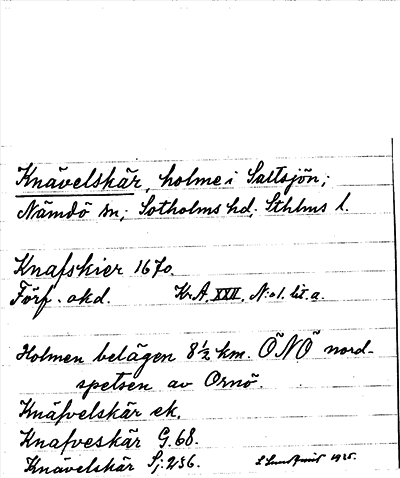 Knävelskär, holme i Saltsjön;
Nämdö sn; Sotholms hd; Sthlms l.
Knafskier 1670.
Förf. okd. Kr.A. XXII, N:o 1. lit. a.
Holmen belägen 8½ km. ÖNÖ nord-
spetsen av Ornö.
Knäfvelskär ek.
Knafveskär G. 68.
Knävelskär Sj: 256. 1925.